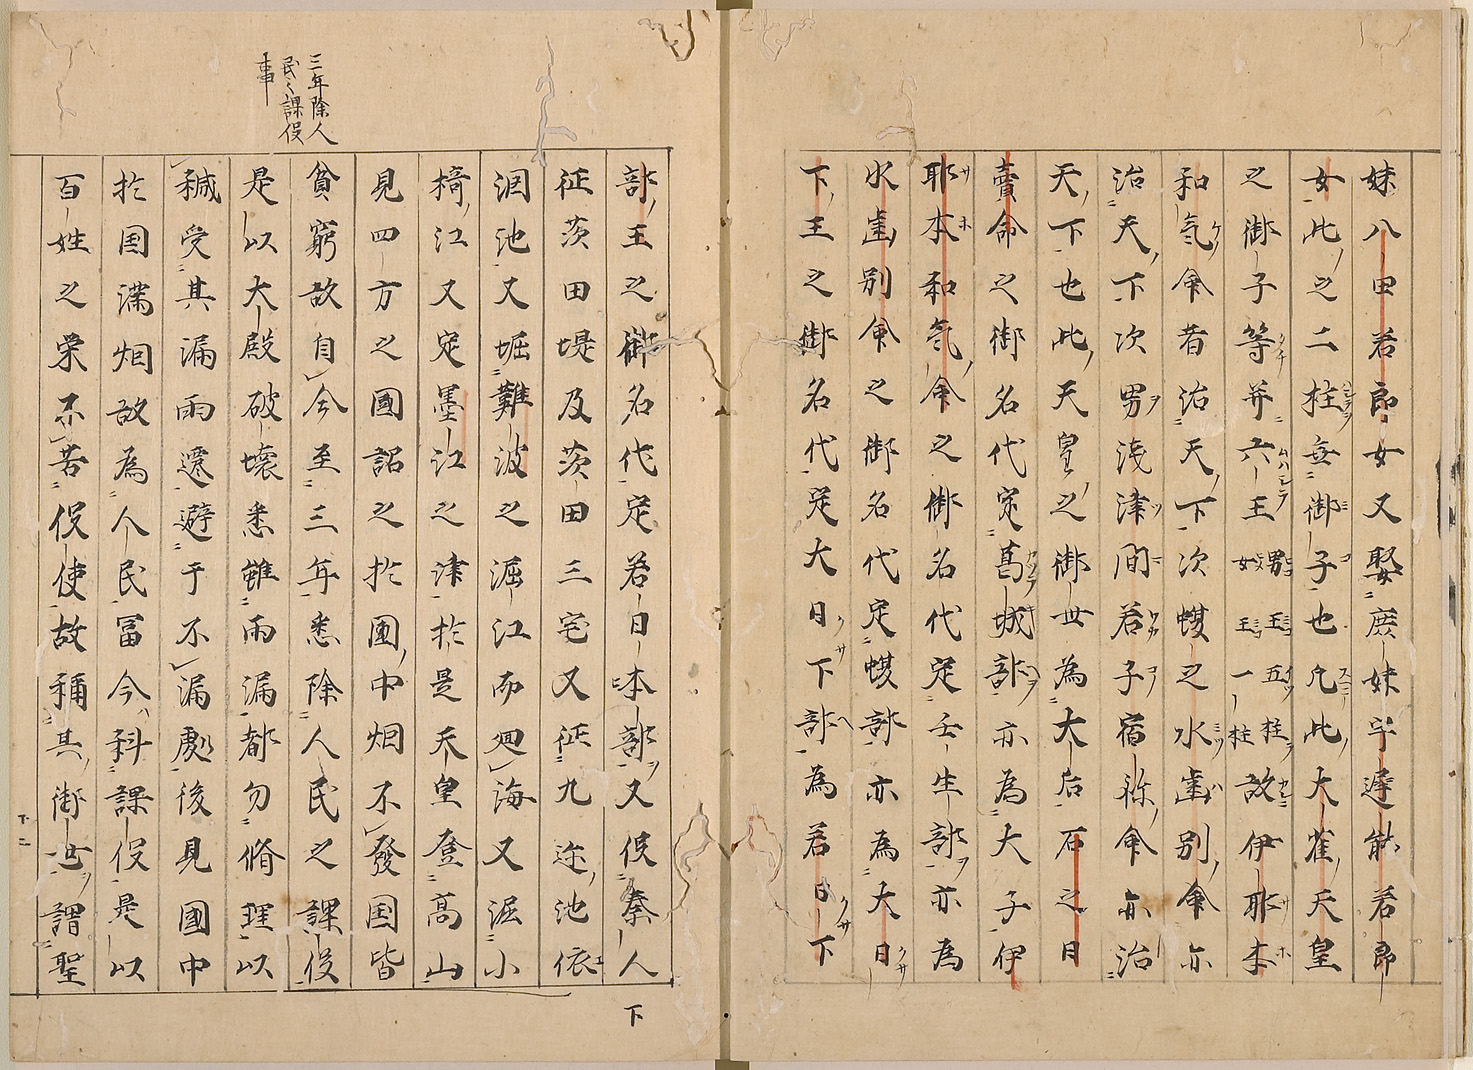 妹八田若郎女又娶庶妹宇遅能若郎
女此之二柱無御子也凡此大雀天皇
之御子等并六王男王五柱女王一柱故伊耶本
和気命者治天下次蝮之水歯別命亦
治天下次男浅津間若子宿祢命亦治
天下也此天皇之御世為大后石之日
賣命之御名代定葛城部亦為大子伊
耶本和気命之御名代定壬生部亦為
水歯別命之御名代定蝮部亦為大日
下王之御名代定大日下部為若日下
部王之御名代定若日本部又役秦人
征茨田堤及茨田三宅又征丸迩池依
洄池又堀難波之渥江而廻海又渥小
椅江又定墨江之津於是天皇登高山
見四方之國詔之於國中烟不發国皆
貧窮故自今至三年悉除人民之課役
是以大殿破壊悉雖雨漏都勿脩理以
椷受其漏雨遷避于不漏處後見國中
於国満烟故為人民冨今科課役是以
百姓之栄不苦役使故稱其御世謂聖
三年除人
民之課役
事
下
下二